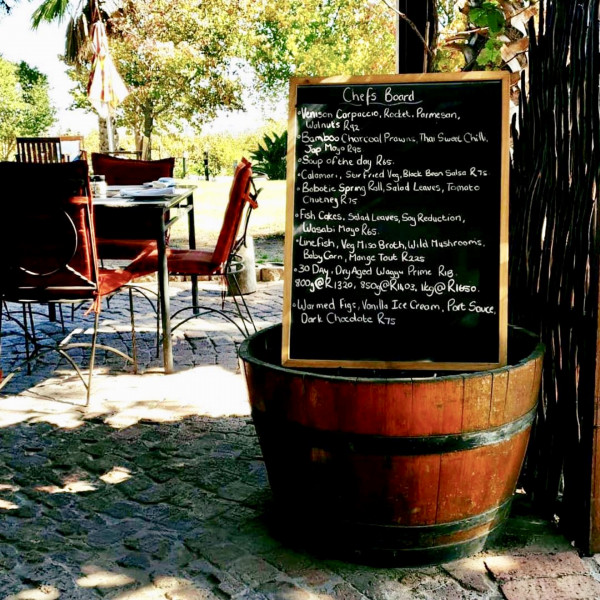 Chefs Board
• Venison Carpaccio, Rocket, Parmesan,
Walnuts R92
• Bamboo Charcoal Prawns, Thai Sweet Chilli,
Jap Mayo R95
• Soup of the day R65.
• Calamari, Stir Fried Veg, Black Bean Salsa R75
• Bobotie Spring Roll, Salad Leaves, Tomato
Chutney R75
• Fish Cakes, Salad Leaves, Soy Reduction,
Wasabi Mayo R65.
• Linefish, Veg Miso Broth, Wild Mushrooms,
Baby Corn, Mange Tout R225
• 30 Day, Dry Aged Wagyu Prime Rib.
800g@R1320, 850g@R1403, 1kg@R1650.
• Warmed Figs, Vanilla Ice Cream, Port Sauce,
Dark Chocolate R75